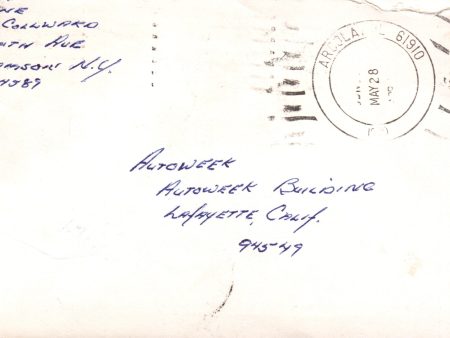 Collward
Ave
N.Y.
ARCOLA, IL 61910
MAY 28
Autoweek
Autoweek Building
Lafayette, Calif.
94549